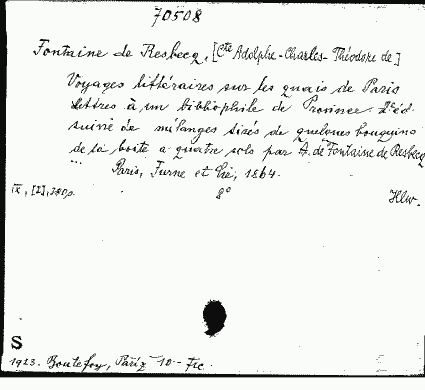 70508
Fontaine de Resbecq, [Cte Adolphe-Charles-Théodore de]
Voyages littéraires sur les quais de Paris
Lettres à un bibliophile de Province 2e éd.
suivie de mélanges tirés de quelques bouquins
de la boite a quatre sols par A. de Fontaine de Resbecq
... Paris, Furne et Cie, 1864.
IX, [2], 380 p. 8° Hlw.
S
1923. Boutefoy, Pariz 10- Frc.